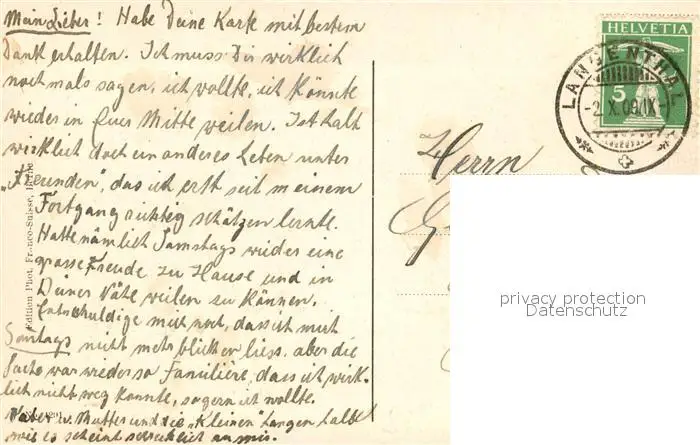 Mein Lieber! Habe Deine Karte mit bestem
Dank erhalten. Ich muss Dir wirklich
nochmals sagen, ich wollte, ich könnte
wieder in Eurer Mitte weilen. Ist halt
wirklich doch ein anderes Leben unter
„Freunden", das ich erst seit meinem
Fortgang richtig schätzen lernte.
Hatte nämlich Samstags wieder eine
grosse Freude zu Hause und in
Deiner Nähe weilen zu können.
Entschuldige mich noch, dass ich mich
Sonntags nicht mehr blicken liess. aber die
Sache war wieder so Familiäre, dass ich wirk-
lich nicht weg konnte, so gern ich wollte.
Vater u. Mutter und die „Kleinen" hangen halt
wie es scheint schrecklich an mir.
Edition Phot. Franco-Suisse, Berne
HELVETIA
5
LANGENTHAL
-2.X.09.IX-
Herrn
privacy protection
Datenschutz